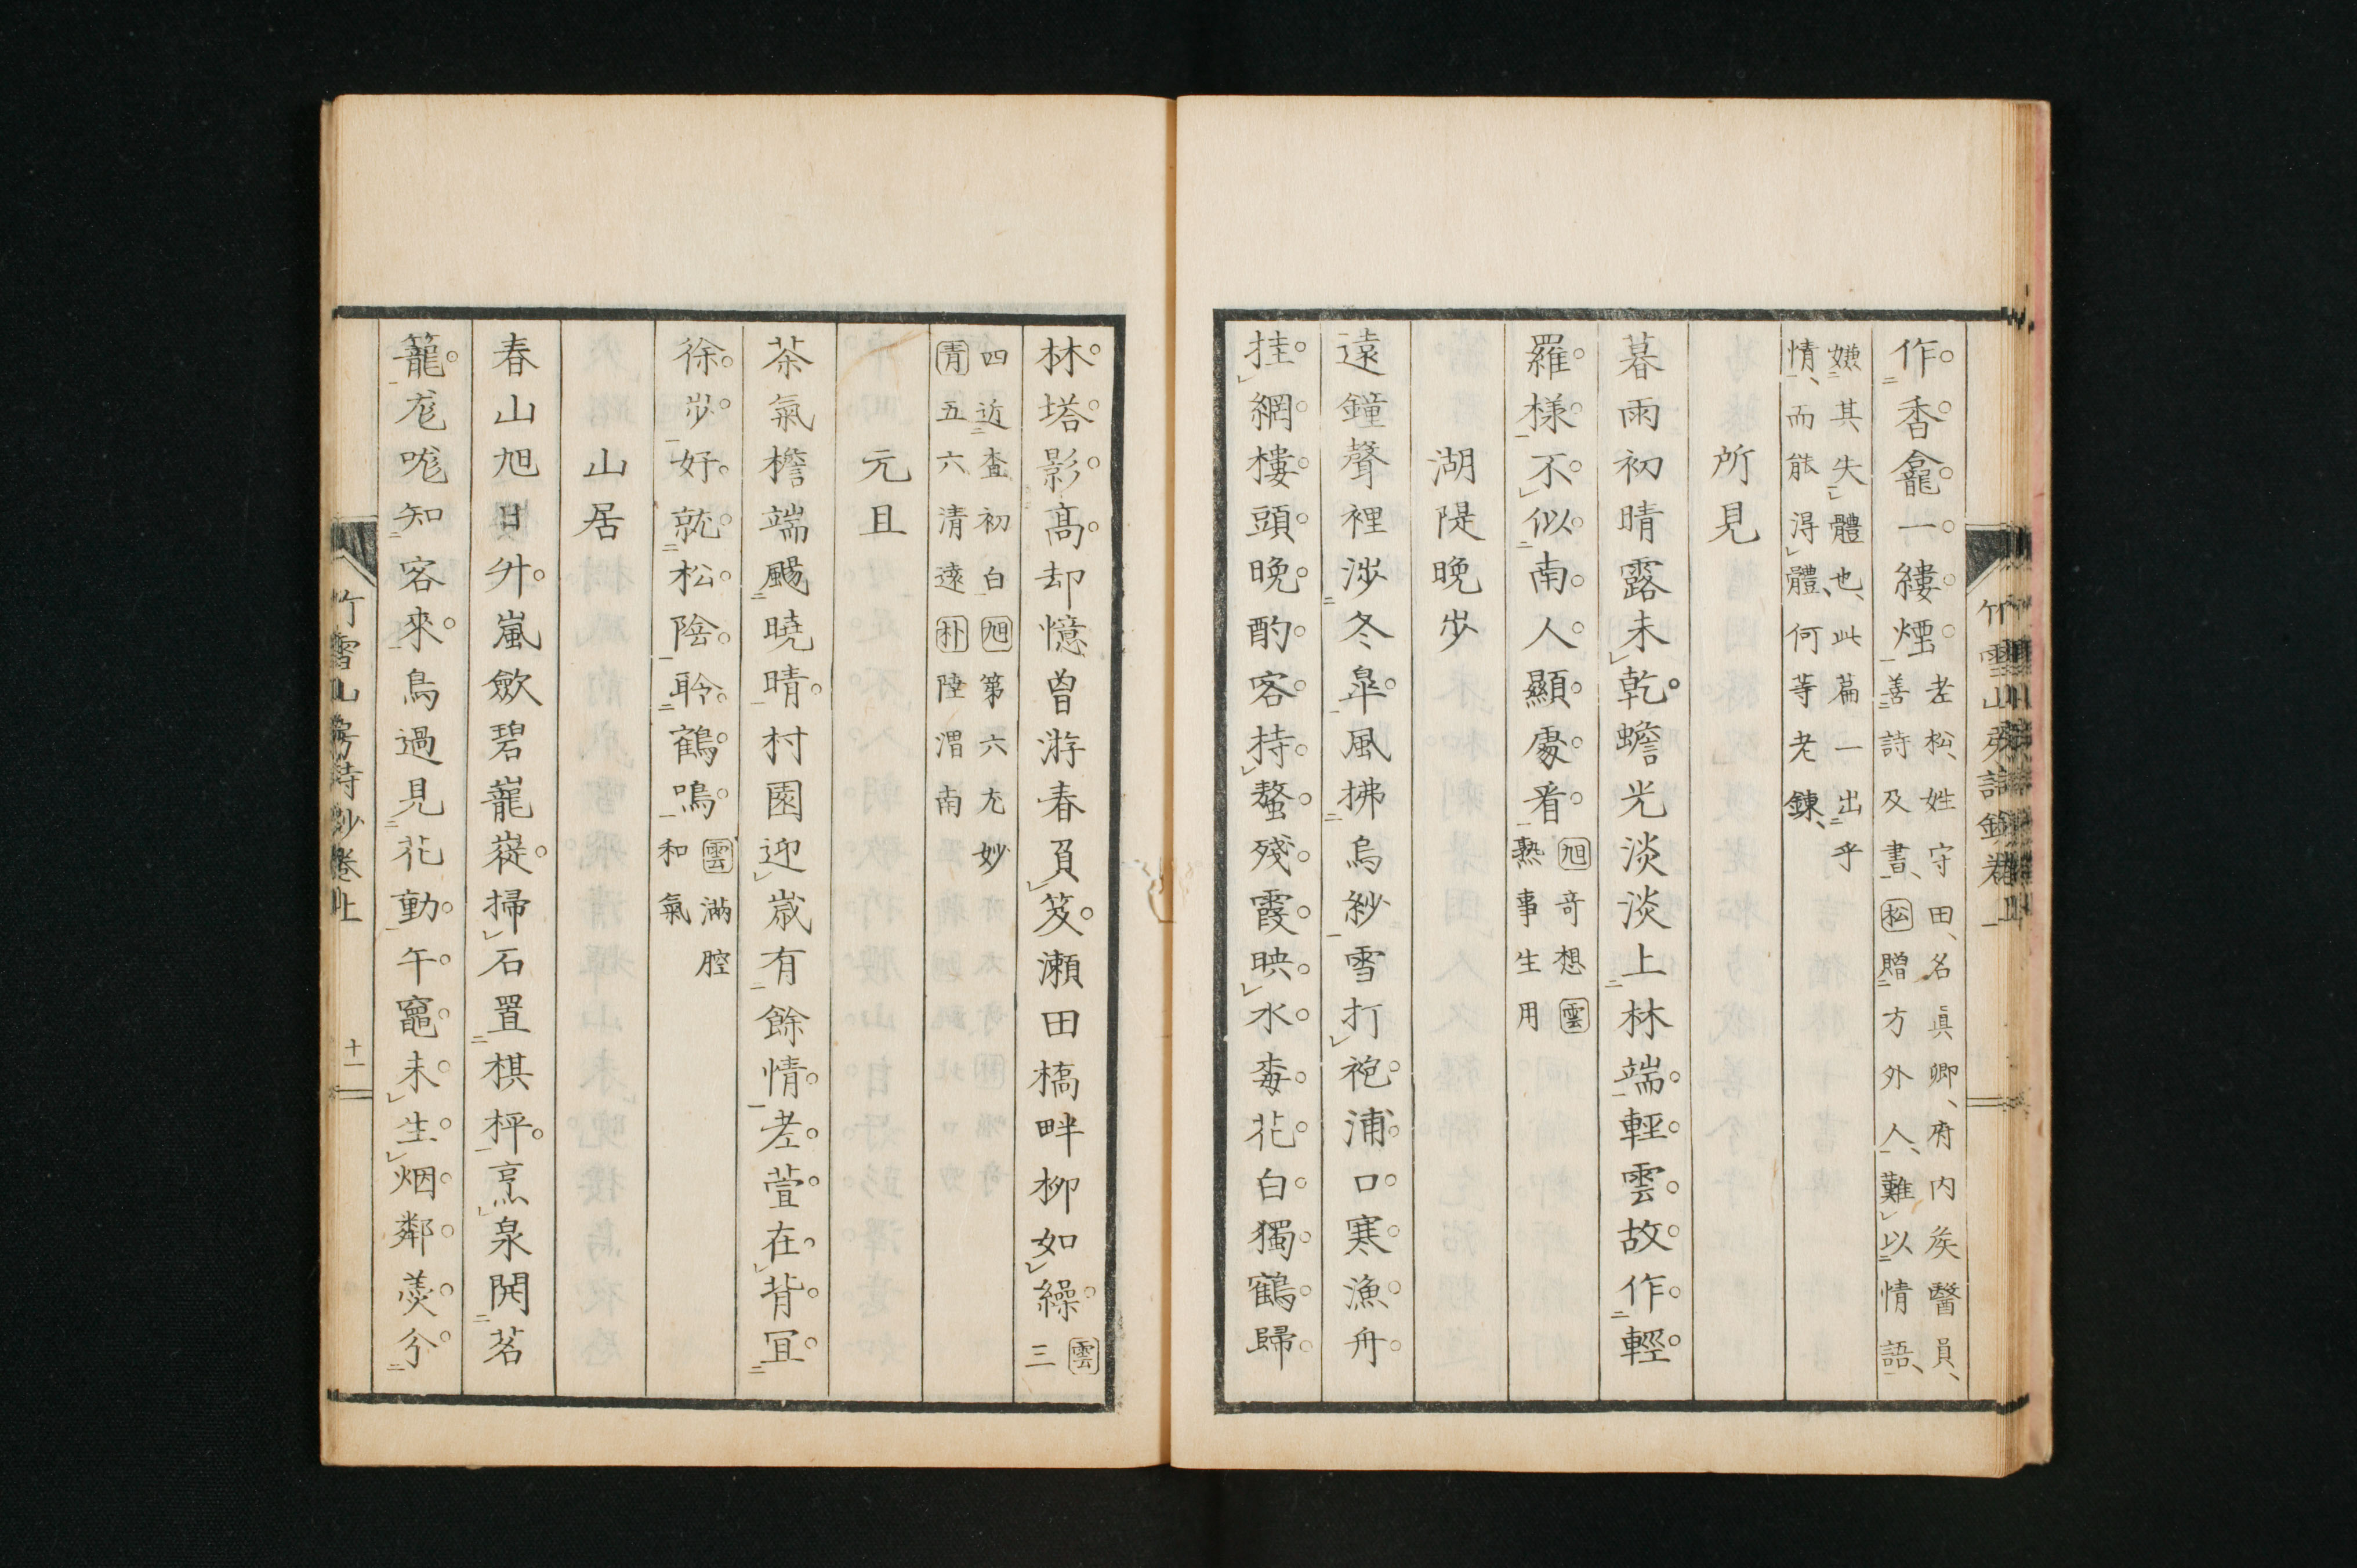 作香龕一縷煙老松姓守田名眞卿府内矦醫員
善詩及書松贈方外人難以情語
嫌其失體也此篇一出乎
情而能得體何等老錬
所見
暮雨初晴露未乾蟾光淡淡上林端輕雲故作輕
羅樣不似南人顯處看旭奇想雲
熱事生用
湖隄晚步
遠鐘聲裡涉冬皐風拂烏紗雪打袍浦口寒漁舟
挂網樓頭晩酌客持螯殘霞映水毒花白獨鶴歸
林塔影高却憶曾游春負笈瀬田橋畔柳如繰雲
三
四近査初白旭第六尢妙
青五六清遠朴陸渭南
元旦
茶氣檐端颺曉晴村園迎歳有餘情老萱在背冝
徐步好就松陰聆鶴鳴雲滿腔
和氣
山居
春山旭日升嵐歛碧巃嵸掃石置棋枰烹泉開茗
籠尨吠知客來鳥過見花動午竈未生烟鄰羮分
竹雪山房詩鈔卷上
十一